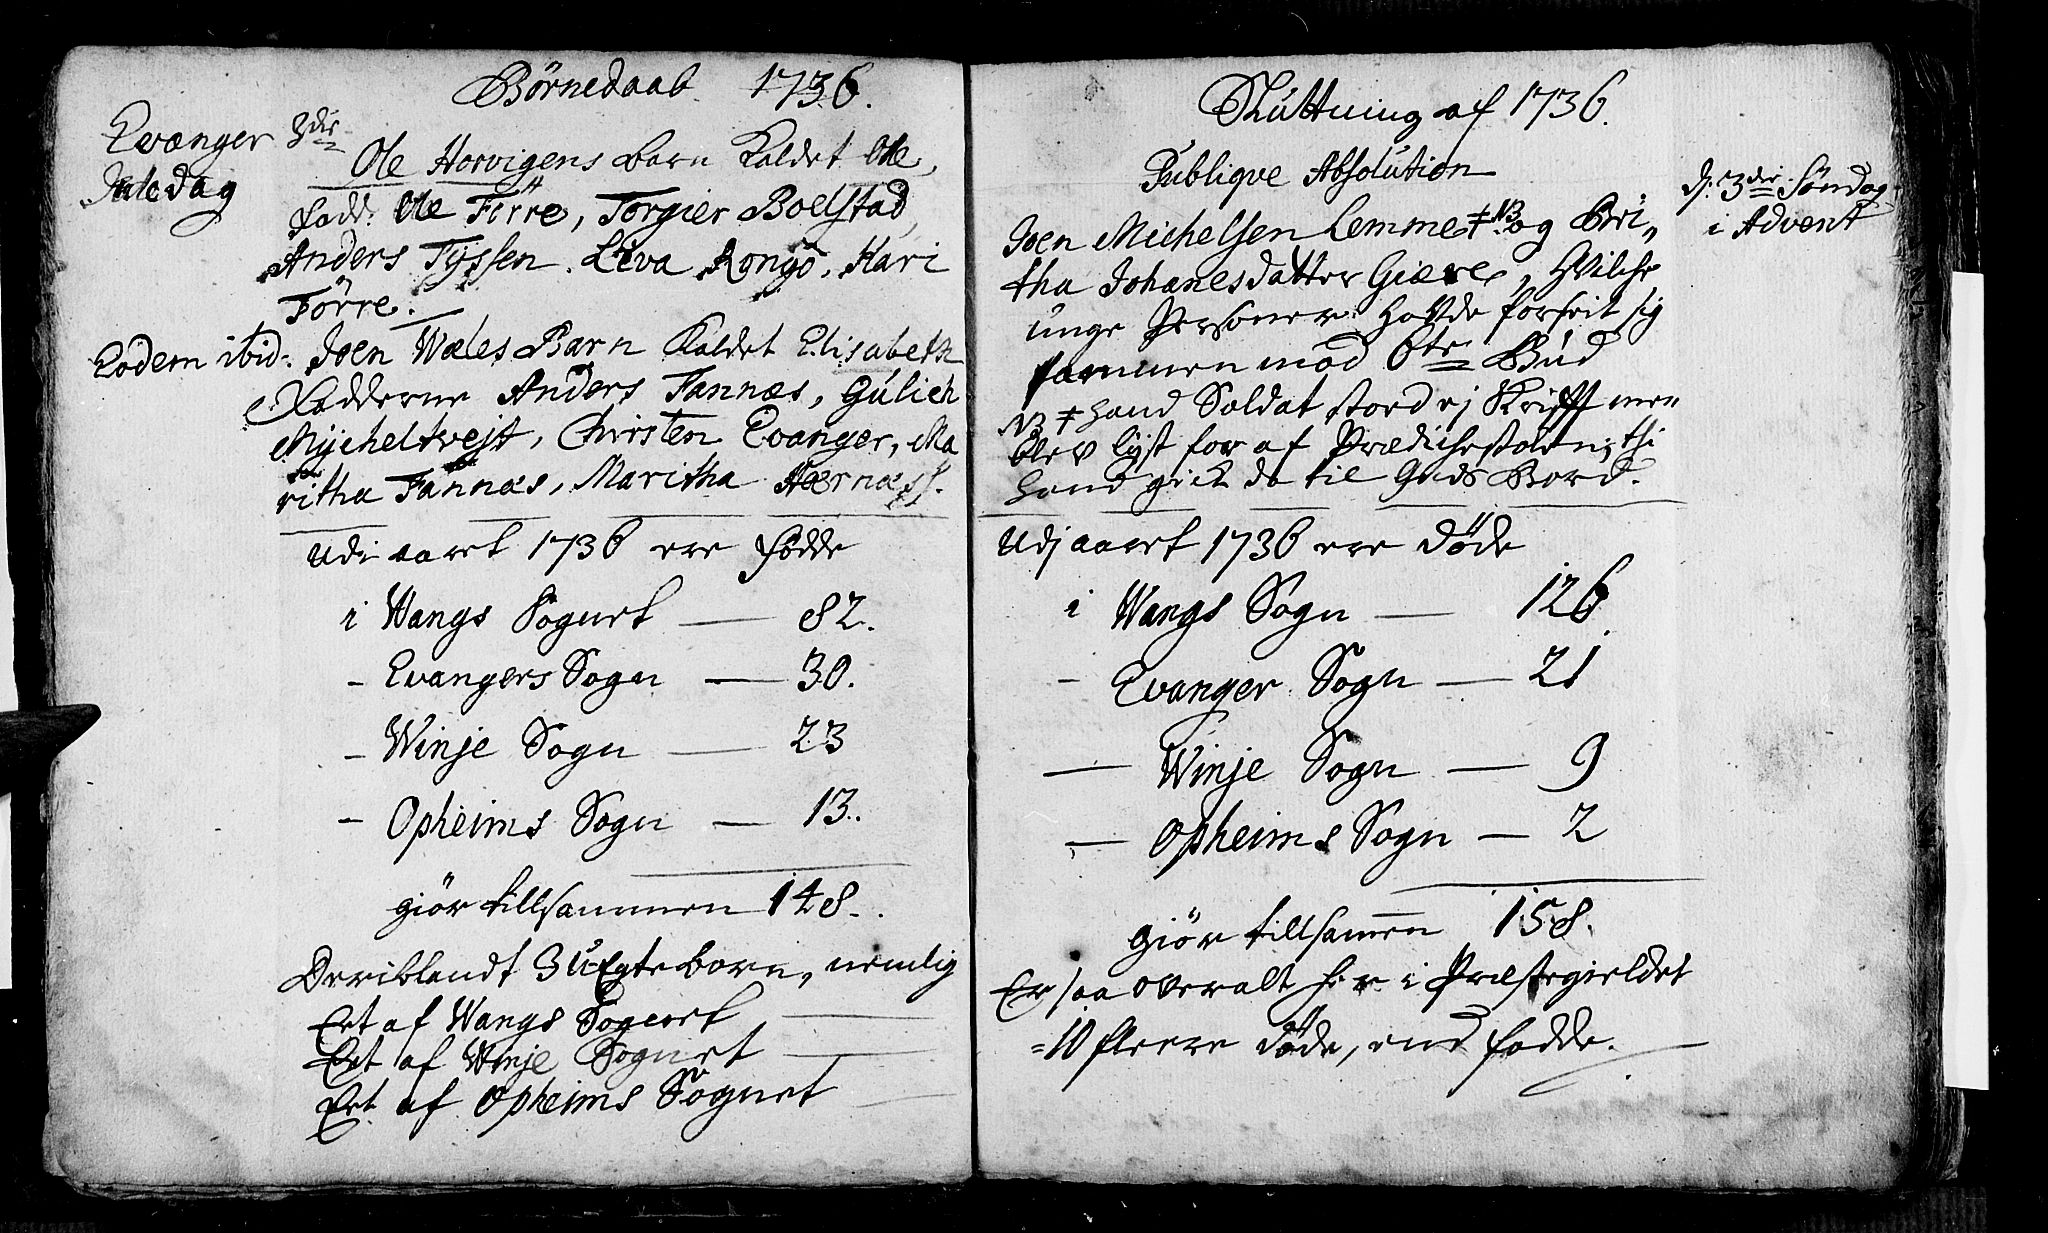 Børnedaab 1736.
Evanger 3die
Juledag
Ole Horvigens barn Kaldet Ole,
fadd: Ole Förre, Torgier Boelstad,
Anders Tyssen. Liva Rongo, Kari
Förre.
Eodem ibid: Joen Wæles Barn Kaldet Elisabeth
Fadderne Anders Fannæs, Gulich
Mycheltvejt, Christen Evanger, Ma
ritha Fannæs, Maritha Hærnæss.
Udi aaret 1736 ere fødde
i Wangs Sognet — 82.
- Evangers Sogn — 30.
- Winje Sogn — 23
- Opheims Sogn — 13.
giør tillsammen 148.
Deriblandt 3 uEgte børn, nemlig
Eet af Wangs Sognet
Eet af Winje Sognet
Eet af Opheims Sognet
Sluttning af 1736.
Publiqve Absolution
D: 3die Søndag
i Advent
Joen Michelsen Lemme ‡ NB og Bri„
tha Johanesdatter Giære, hvilche
unge Personer hafde forseit sig
sammen mod 6te Bud
NB ‡ hand Soldat stoed ej Skrifft men
blev lyst for af Prædichestolen; thi
hand gick da til Guds Bord.
Udj aaret 1736 ere døde
i Wangs Sogn — 126
- Evanger Sogn — 21
— Winje Sogn — 9
— Opheims Sogn — 2
giør tillsamen 158.
Er saa overalt her i Præstegieldet
=10 fleere døde, end fødde.